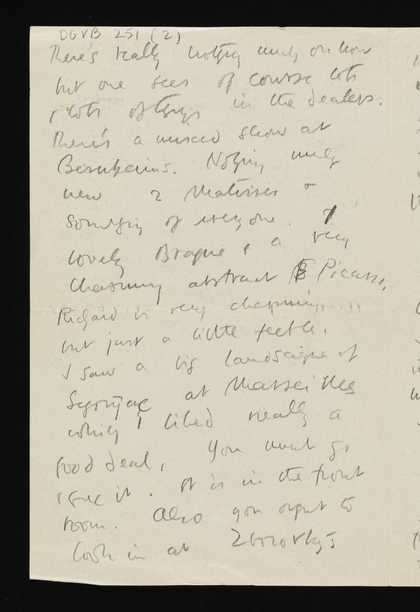 DGVB 251 (2)
There's really nothing much on now
but one sees of course lots
& lots of things in the dealers.
There's a mixed show at
Bernheims. Nothing much
new 2 Matisses &
something of everyone.
lovely Braque & a very
charming abstract Picasso,
Richard is very charming
but just a little feeble.
I saw a big landscape of
Segonzac at Marseilles
which I liked really a
good deal, you must go
& see it. It is in the front
room. Also you ought to
look in at Zborovsky's